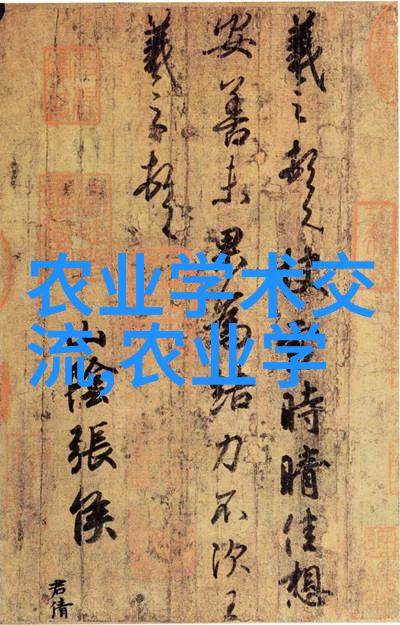 农业学术交
流,农业学
羲之頓首快時晴佳想
安善未果為結力不次王
羲之頓首
山陰張侯
君倩